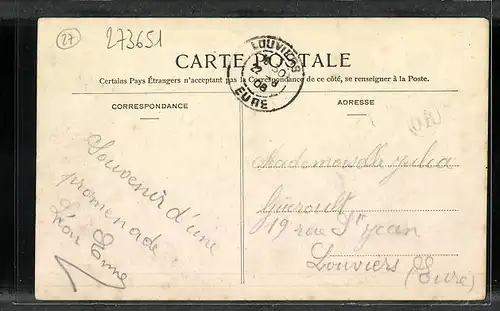 27
273651
CARTE POSTALE
Certains Pays Étrangers n'acceptant pas la Correspondance de ce côté, se renseigner à la Poste.
LOUVIERS
EURE
CORRESPONDANCE
ADRESSE
Souvenir d'une
promenade
Léon
Mademoiselle Julia
Guéroult
19 rue St Jean
Louviers (Eure)